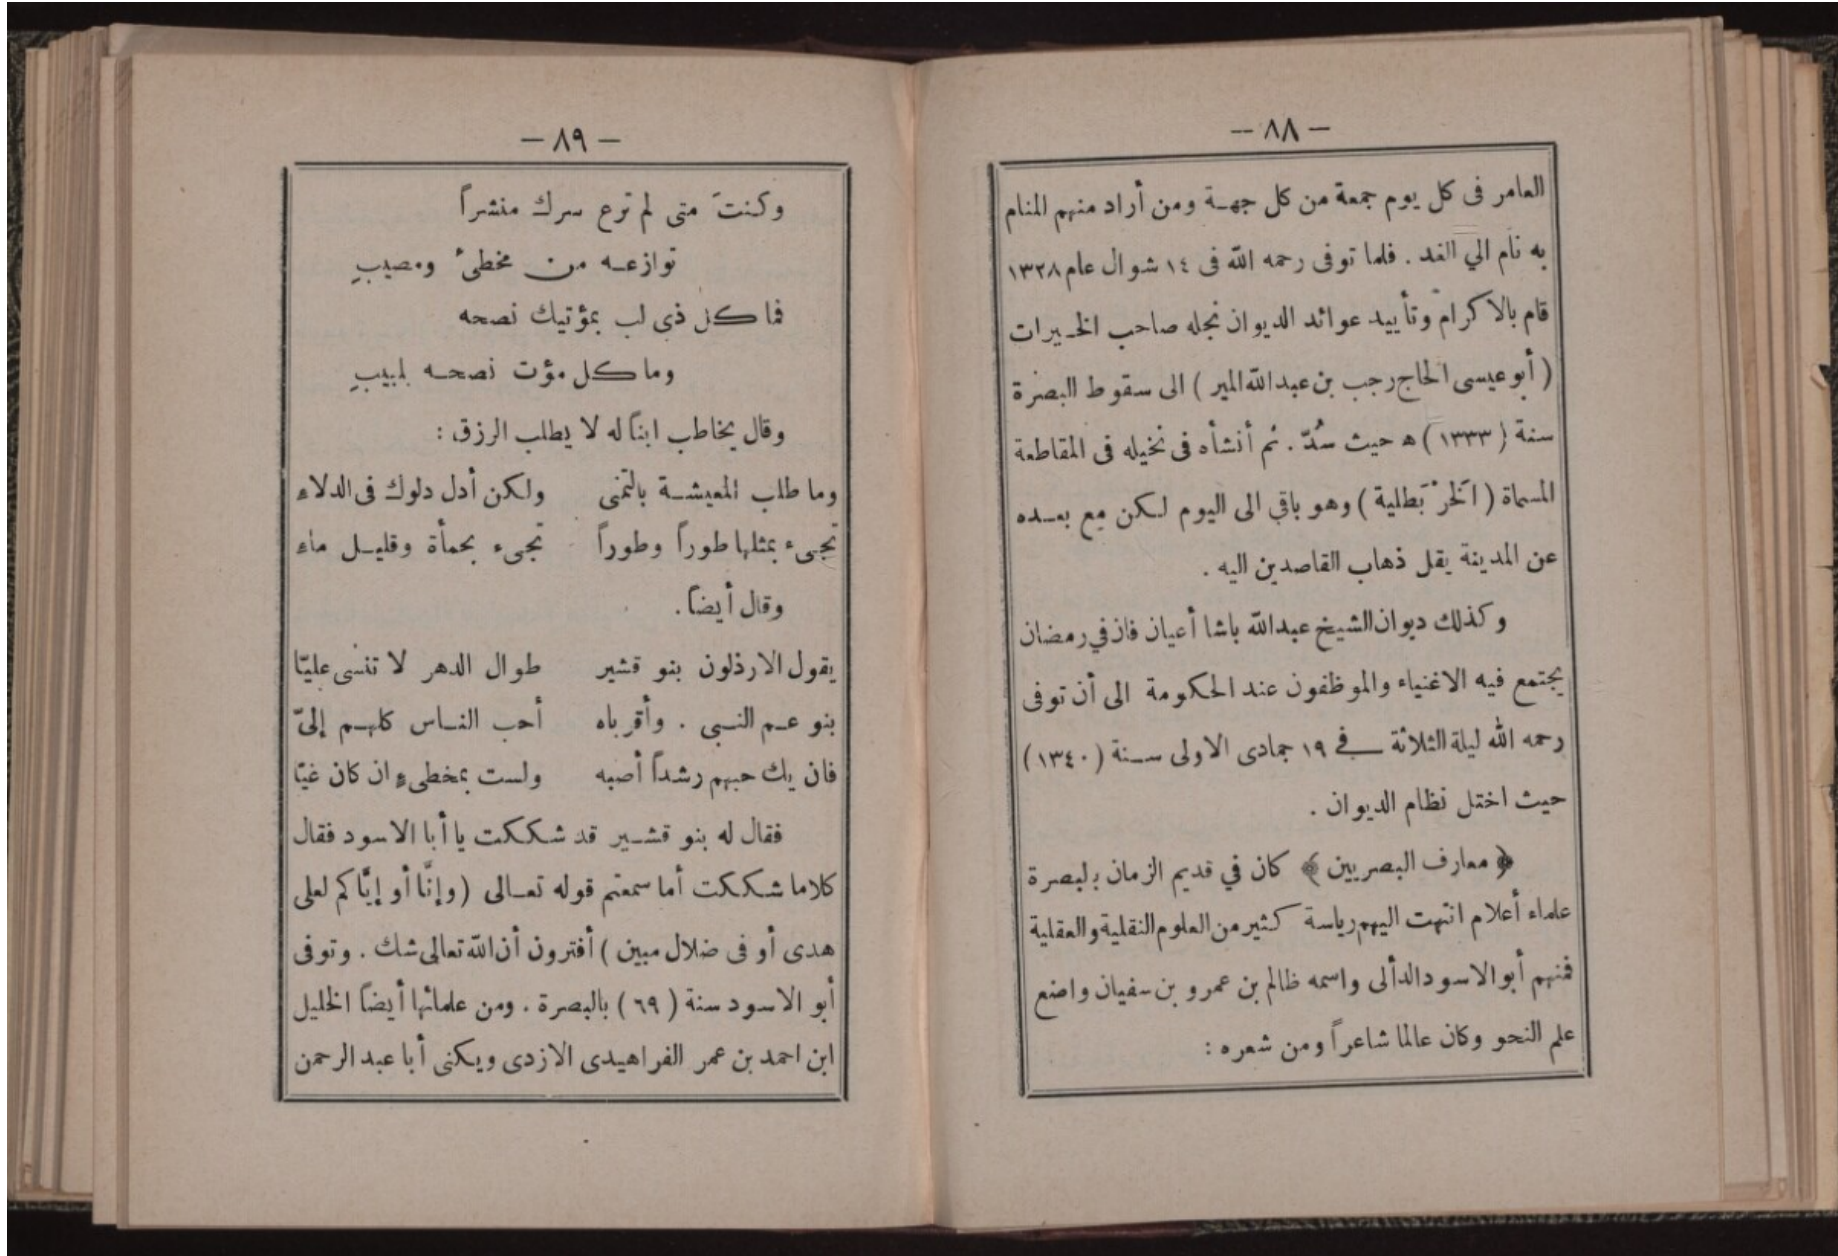 — ٨٨ —
العامر فى كل يوم جمعة من كل جهة ومن أراد منهم المنام
به نام الي الغد . فلما توفى رحمه الله فى ١٤ شوال عام ١٣٢٨
قام بالاكرام وتأييد عوائد الديوان نجله صاحب الخيرات
( أبو عيسى الحاج رجب بن عبدالله المير ) الى سقوط البصرة
سنة ( ١٣٣٣ ) ه حيث سُدّ . ثم أنشأه فى نخيله فى المقاطعة
المسماة ( اَلخرْ بَطلية ) وهو باقي الى اليوم لكن مع بعده
عن المدينة يقل ذهاب القاصدين اليه .
وكذلك ديوان الشيخ عبدالله باشا أعيان فان في رمضان
يجتمع فيه الاغنياء والموظفون عند الحكومة الى أن توفى
رحمه الله ليلة الثلاثة في ١٩ جمادى الاولى سنة ( ١٣٤٠ )
حيث اختل نظام الديوان .
﴿ معارف البصريين ﴾ كان في قديم الزمان بالبصرة
علماء أعلام انتهت اليهم رياسة كثير من العلوم النقلية والعقلية
فمنهم أبو الاسود الدألى واسمه ظالم بن عمرو بن سفيان واضع
علم النحو وكان عالما شاعراً ومن شعره :
— ٨٩ —
وكنتَ متى لم ترع سرك منشراً
توازعه من مخطىء ومصيبِ
فما كل ذي لب بمؤتيك نصحه
وما كل مؤت نصحه بلبيبِ
وقال يخاطب ابناً له لا يطلب الرزق :
وما طلب المعيشة بالتمنى ولكن أدل دلوك فى الدلاءِ
تجىء بمثلها طوراً وطوراً تجىء بحمأة وقليل ماءِ
وقال أيضاً .
يقول الارذلون بنو قشير طوال الدهر لا تنسى عليّا
بنو عم النبي . وأقرباه أحب الناس كلهم إلىّ
فان يك حبهم رشداً أصبه ولست بمخطىءٍ ان كان غيّا
فقال له بنو قشير قد شككت يا أبا الاسود فقال
كلاما شككت أما سمعتم قوله تعالى ( وإنَّا أو إيَّاكم لعلى
هدى أو فى ضلال مبين ) أفترون أن الله تعالى شك . وتوفى
أبو الاسود سنة ( ٦٩ ) بالبصرة . ومن علمائها أيضاً الخليل
ابن احمد بن عمر الفراهيدى الازدى ويكنى أبا عبد الرحمن